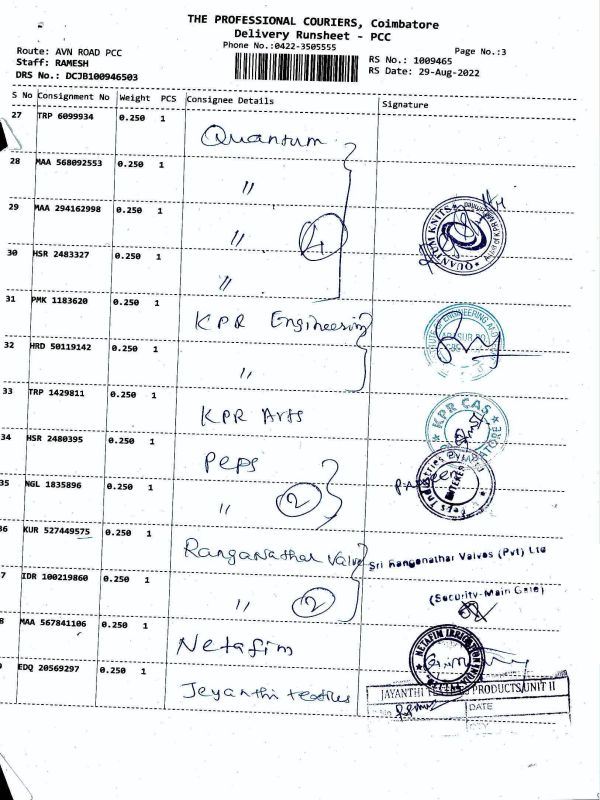 THE PROFESSIONAL COURIERS, Coimbatore
Delivery Runsheet - PCC
Phone No.:0422-3505555
Page No.:3
Route: AVN ROAD PCC
Staff: RAMESH
DRS No.: DCJB100946503
RS No.: 1009465
RS Date: 29-Aug-2022
S No Consignment No Weight PCS Consignee Details Signature
27 TRP 6099934 0.250 1 Quantum
28 MAA 568092553 0.250 1 "
29 MAA 294162998 0.250 1 " 4
QUANTUM KNITS
30 HSR 2483327 0.250 1 "
31 PMK 1183620 0.250 1 KPR Engineering
OF ENGINEERING AND
32 HRD 50119142 0.250 1 "
33 TRP 1429811 0.250 1 KPR Arts
KPR CAS
34 HSR 2480395 0.250 1 Peps
35 NGL 1835896 0.250 1 " 2
Peps Industries
36 KUR 527449575 0.250 1 Ranganathar Valve
Sri Ranganathar Valves (Pvt) Ltd
7 IDR 100219860 0.250 1 " 2
(Security-Main Gate)
8 MAA 567841106 0.250 1 Netafim
NETAFIM IRRIGATION INDIA
EDQ 20569297 0.250 1 Jeyanthi textiles
JAYANTHI PRODUCTS UNIT II
DATE